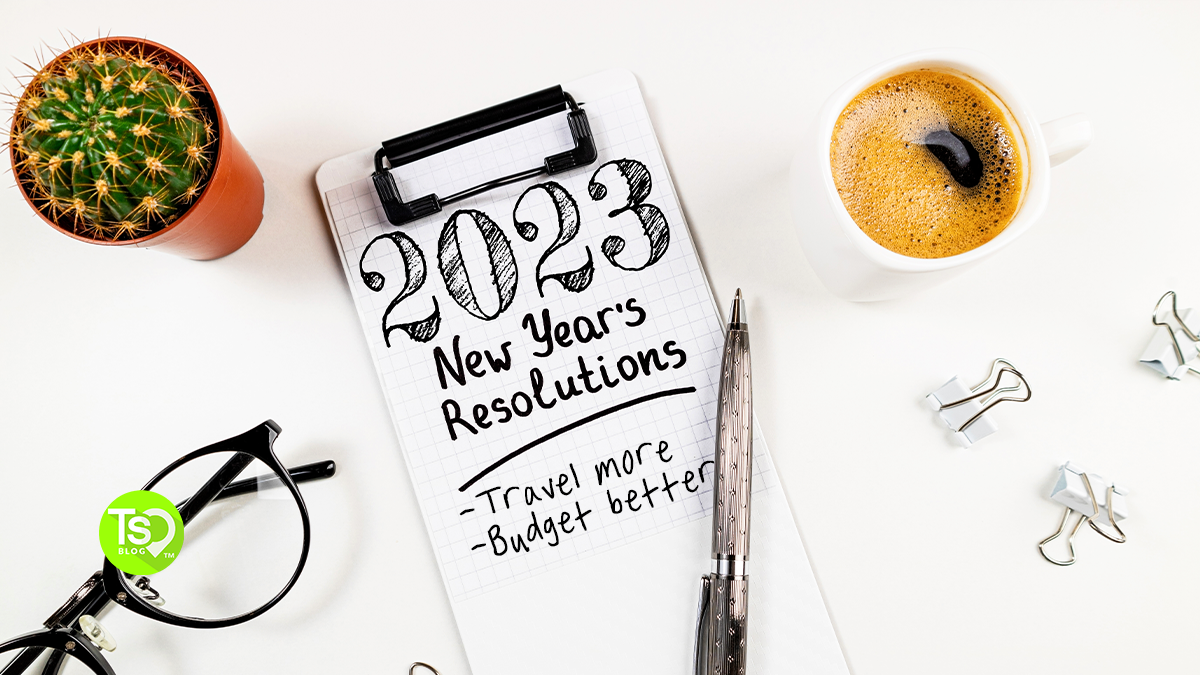 2023
New Year's
Resolutions
-Travel more
-Budget better
TS
BLOG
TM